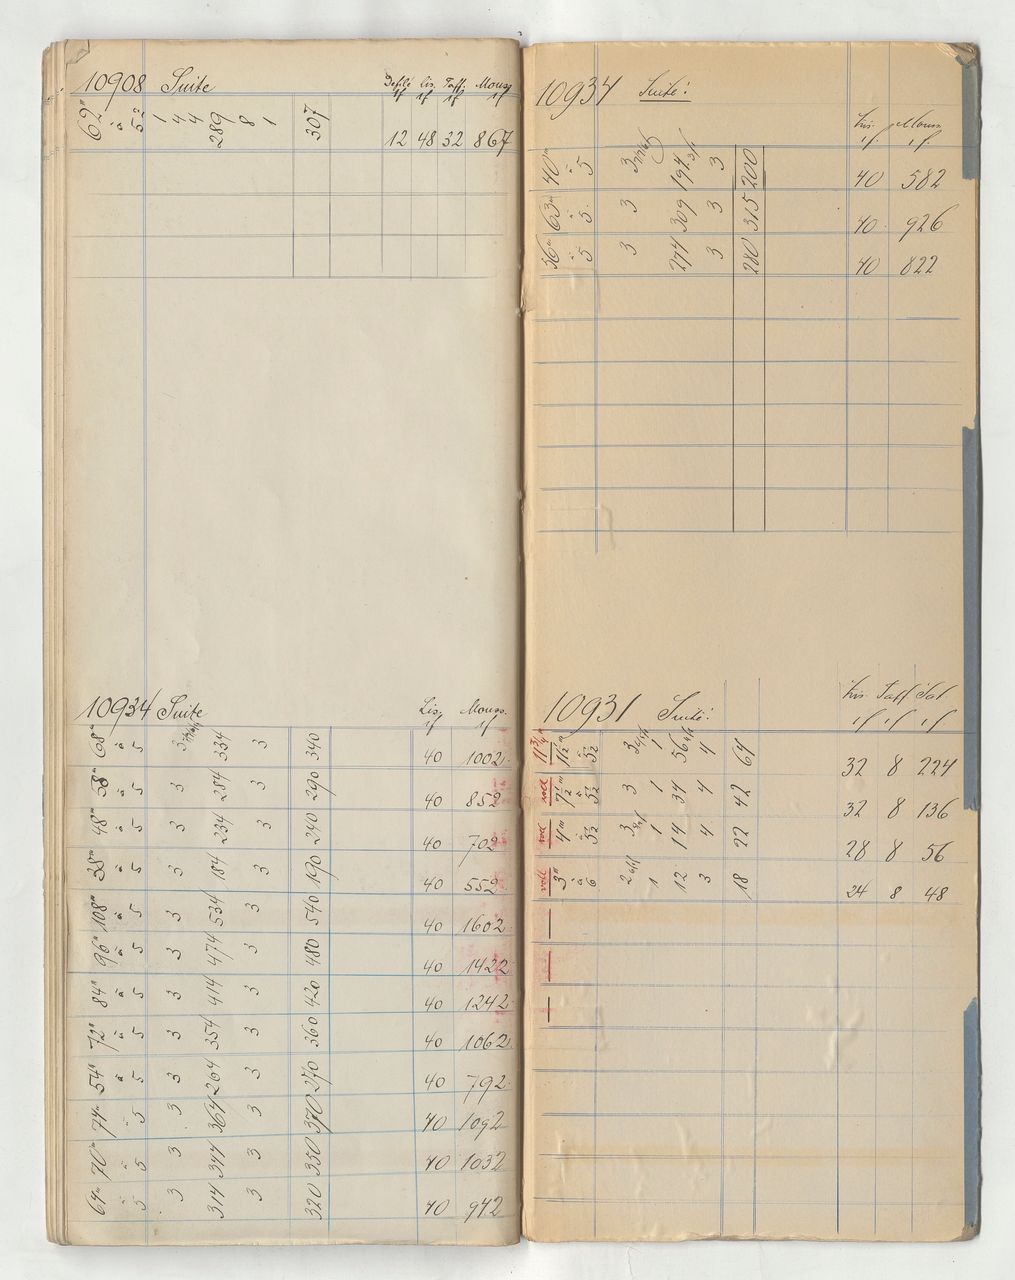 10908 Suite
Defilé Lis. Taff. Mouss.
62" à 5 1 4 4 289 8 1 307 12 48 32 867
10934 Suite
Lis. Mouss.
68" à 5 3 334 3 340 40 1002
58" à 5 3 284 3 290 40 852
48" à 5 3 234 3 240 40 702
38" à 5 3 184 3 190 40 552
108" à 5 3 534 3 540 40 1602
96" à 5 3 474 3 480 40 1422
84" à 5 3 414 3 420 40 1242
72" à 5 3 354 3 360 40 1062
54" à 5 3 264 3 270 40 792
74" à 5 3 364 3 370 40 1092
70" à 5 3 344 3 350 40 1032
64" à 5 3 314 3 320 40 942
10934 Suite:
Lis. Mouss.
40" à 5 3 194 3 200 40 582
63" à 5 3 309 3 315 40 926
56" à 5 3 274 3 280 40 822
10931 Suite:
Lis. Taff
11½" à 5½ 3 1 56 4 64 32 8 224
voll 7½" à 5½ 3 1 34 4 42 32 8 136
voll 4" à 5½ 3 1 14 4 22 28 8 56
voll 3" à 6 2 1 12 3 18 24 8 48